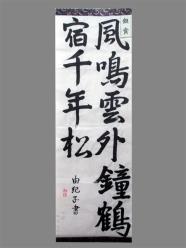 銀賞
風鳴雲外鐘鶴
宿千年松
由紀子書